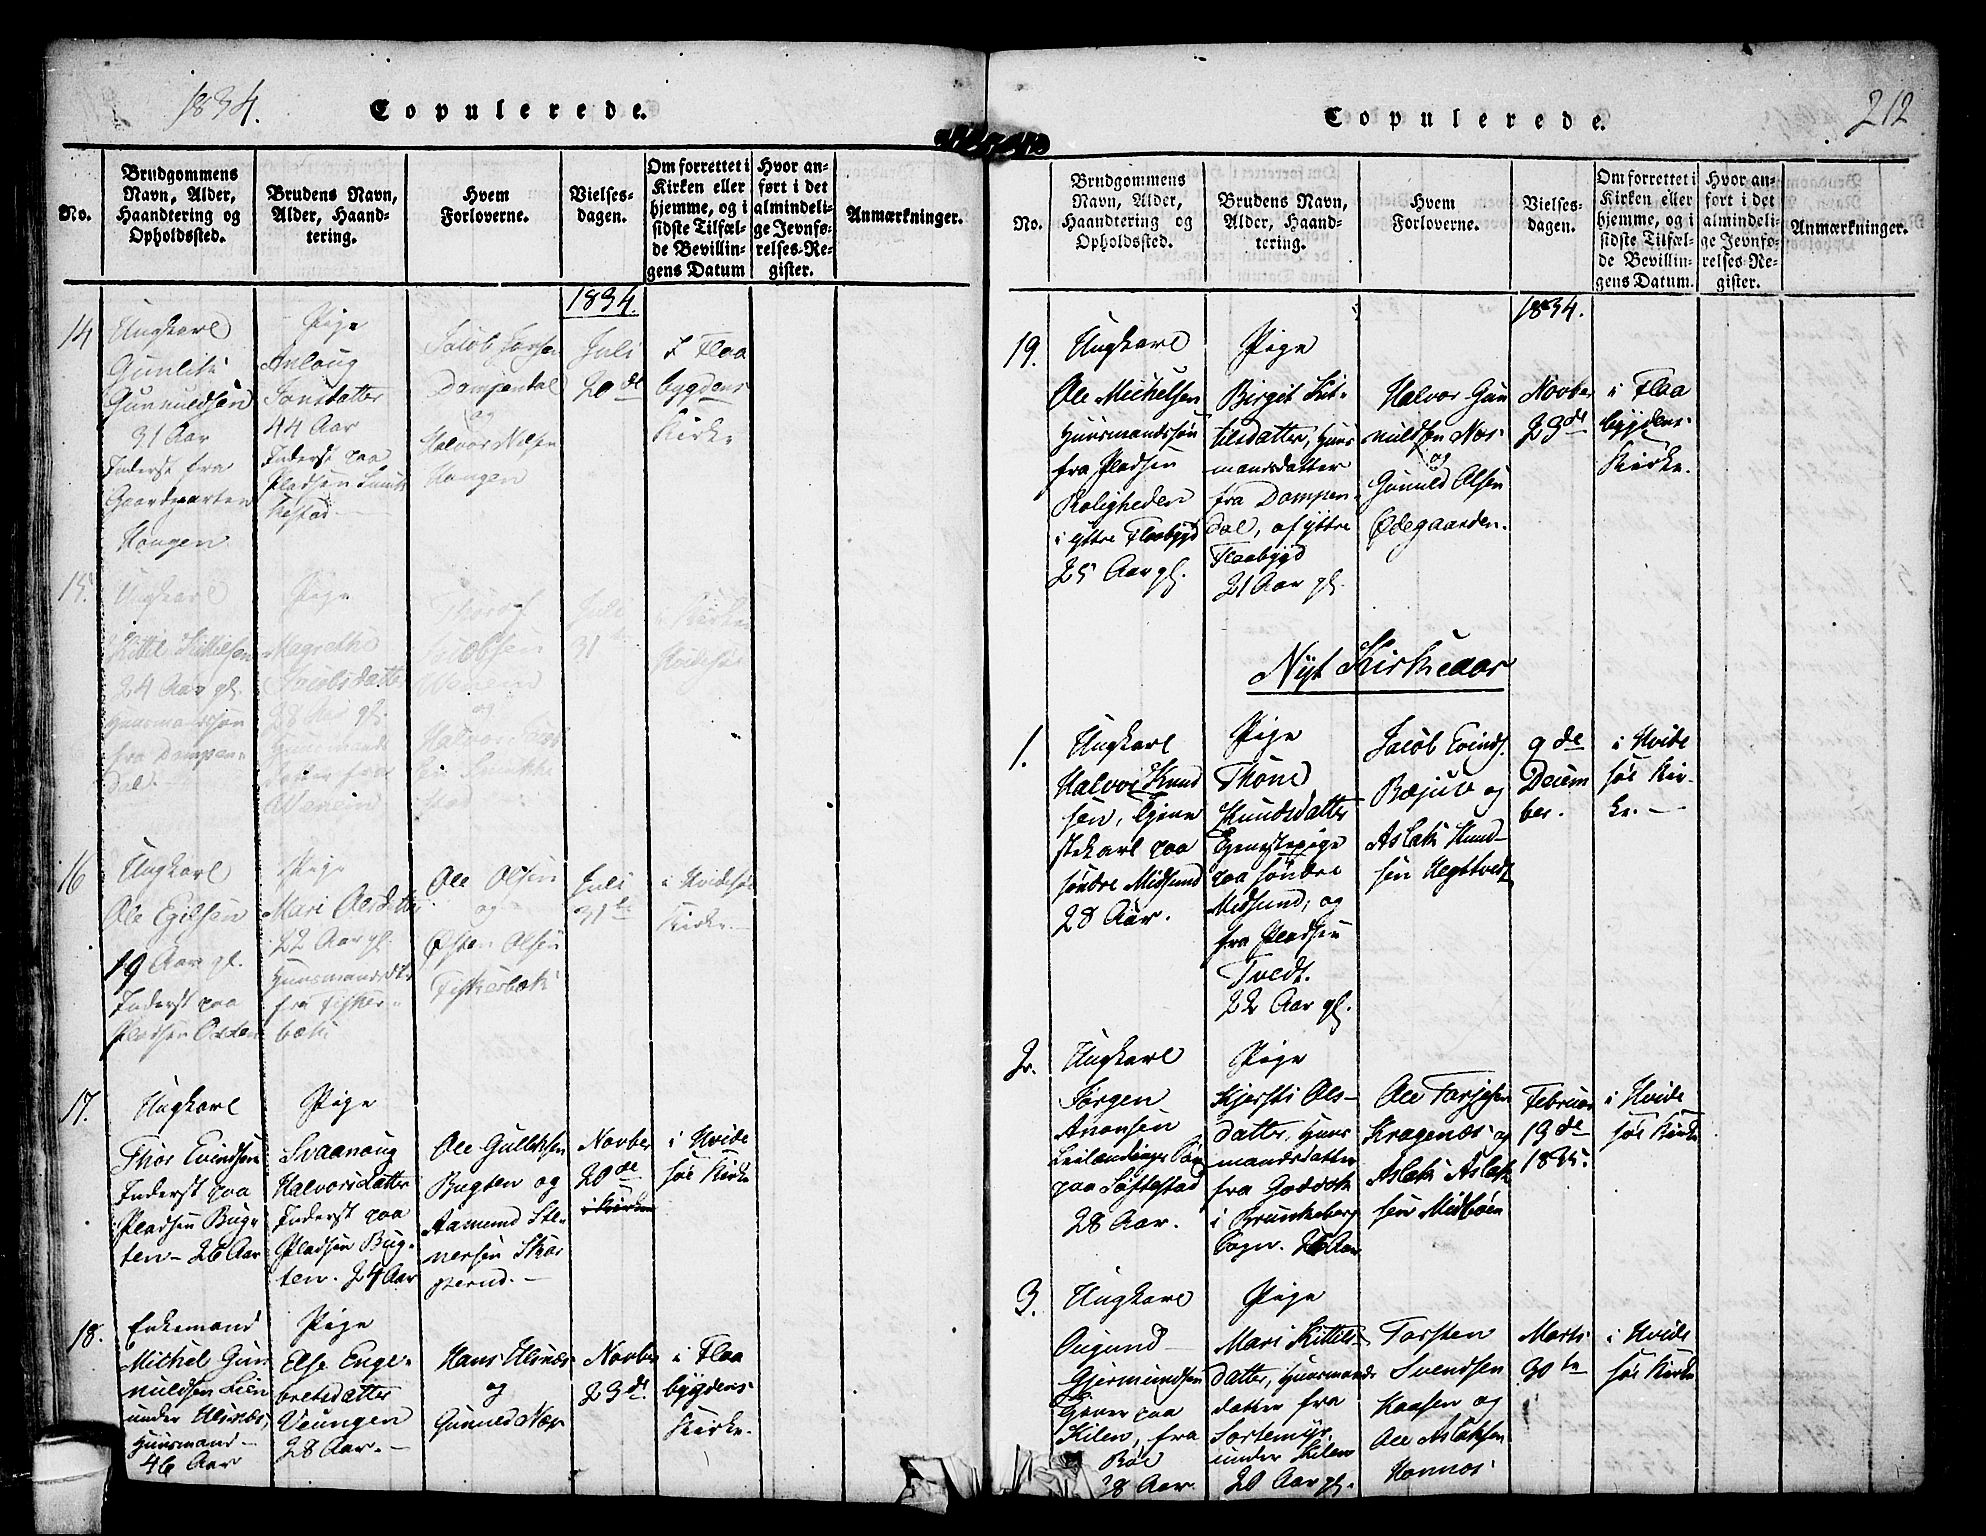 1834.
Copulerede.
No.
Brudgommens
Navn, Alder,
Haandtering og
Opholdssted.
Brudens Navn,
Alder, Haand-
tering.
Hvem
Forloverne.
Vielses-
dagen.
Om forrettet i
Kirken eller
hjemme, og i
sidste Tilfæl-
de Bevillin-
gens Datum
Hvor an-
ført i det
almindeli-
ge Jevnfø-
relses-Re-
gister.
Anmærkninger.
1834.
14
Ungkarl
Gunuldsen
31 Aar
Inderst fra
Haugen
Pige
Anlaug
Jonsdatter
44 Aar
Inderst paa
Pladsen
Jacob
Dompendal
og
Halvor Nilsen
Haugen
Juli
20de
I Flaa
bygdens
Kirke
15.
Ungkarl
Kittil Kittilsen
24 Aar gl.
Huusmandssøn
fra Dompen-
dal.
Pige
Magrethe
Jacobsdatter
28 Aar gl.
Huusmands
datter fra
Jacobsen
og
Halvor
Juli
31
i
Hvidesøe
16
Ungkarl
Ole Egilsen
19 Aar gl.
Inderst paa
Pladsen
Pige
Mari
22 Aar gl.
fra Fisker-
bæk
Ole Olsen
og
Østen Olsen
Fiskerbæk
Juli
31te
i Hvidesøe
Kirke.
17.
Ungkarl
Thor Evindsen
Inderst paa
Pladsen Bug-
ten - 26 Aar
Pige
Svaanoug
Halvorsdatter
Inderst paa
Pladsen Bug-
ten. 24 Aar
Ole Gulleksen
Bugten og
Aamund
nersen
Novber
20de
i Hvide
søe Kirke
18.
Enkemand
Michel Gun
nuldsen Lien
under Ulsnæs,
Huusmand
46 Aar
Pige
Else Enge-
bretsdatter
Veungen
28 Aar.
Hans Ulsnæs
og
Gunuld Næs
Novber
23de
i Flaa
bygdens
Kirke.
212
Copulerede.
No.
Brudgommens
Navn, Alder,
Haandtering og
Opholdssted.
Brudens Navn,
Alder, Haand-
tering.
Hvem
Forloverne.
Vielses-
dagen.
Om forrettet i
Kirken eller
hjemme, og i
sidste Tilfæl-
de Bevillin-
gens Datum.
Hvor an-
ført i det
almindeli-
ge Jevnfø-
relses-Re-
gister.
Anmærkninger.
1834.
19.
Ungkarl
Ole Michelsen
Huusmandssøn
fra Pladsen
Roligheden
i yttre Flaabygd
25 Aar gl.
Pige
Birgit Kit-
tilsdatter, Huus
mandsdatter
fra Dompen-
dal, af yttre
Flaabygd
21 Aar gl.
Halvor Gun
nuldsen Næs
og
Gunuld Olsen
Ødegaarden.
Novber
23de
i Flaa
bygdens
Kirke.
Nyt Kirkeaar
1.
Ungkarl
Halvor Knud
sen, Tjene
stekarl paa
søndre Midsund
28 Aar.
Pige
Thone
Knudsdatter
Tjenestepige
paa søndre
Midsund, og
fra Pladsen
Tvedt.
22 Aar gl.
Jacob Evinds.
og
Aslak Knud-
sen
9de
Decem
ber.
i Hvide
søe Kir-
ke.
2.
Ungkarl
Jørgen
Anonsen
Leilændings Søn
paa Søftestad
28 Aar.
Pige
Kjersti Ols-
datter, Huus
mandsdatter
fra
i Brunkeberg
Sogn. Aar
Ole Tarjesen
Kragenæs og
Aslak Aslak
sen Midbøen
Februar
13de
1835.
i Hvide
søe Kirke
3.
Ungkarl
Ougund
Gjermundsen
Tjener paa
Kilen, fra
Bøe
28 Aar
Pige
Mari Kittils-
datter, Huusmands
datter fra
Sortemyr
under Kilen
20 Aar gl.
Torsten
Svendsen
Haasen og
Ole Aslaksen
Marts
30te
i Hvide
søe Kirke